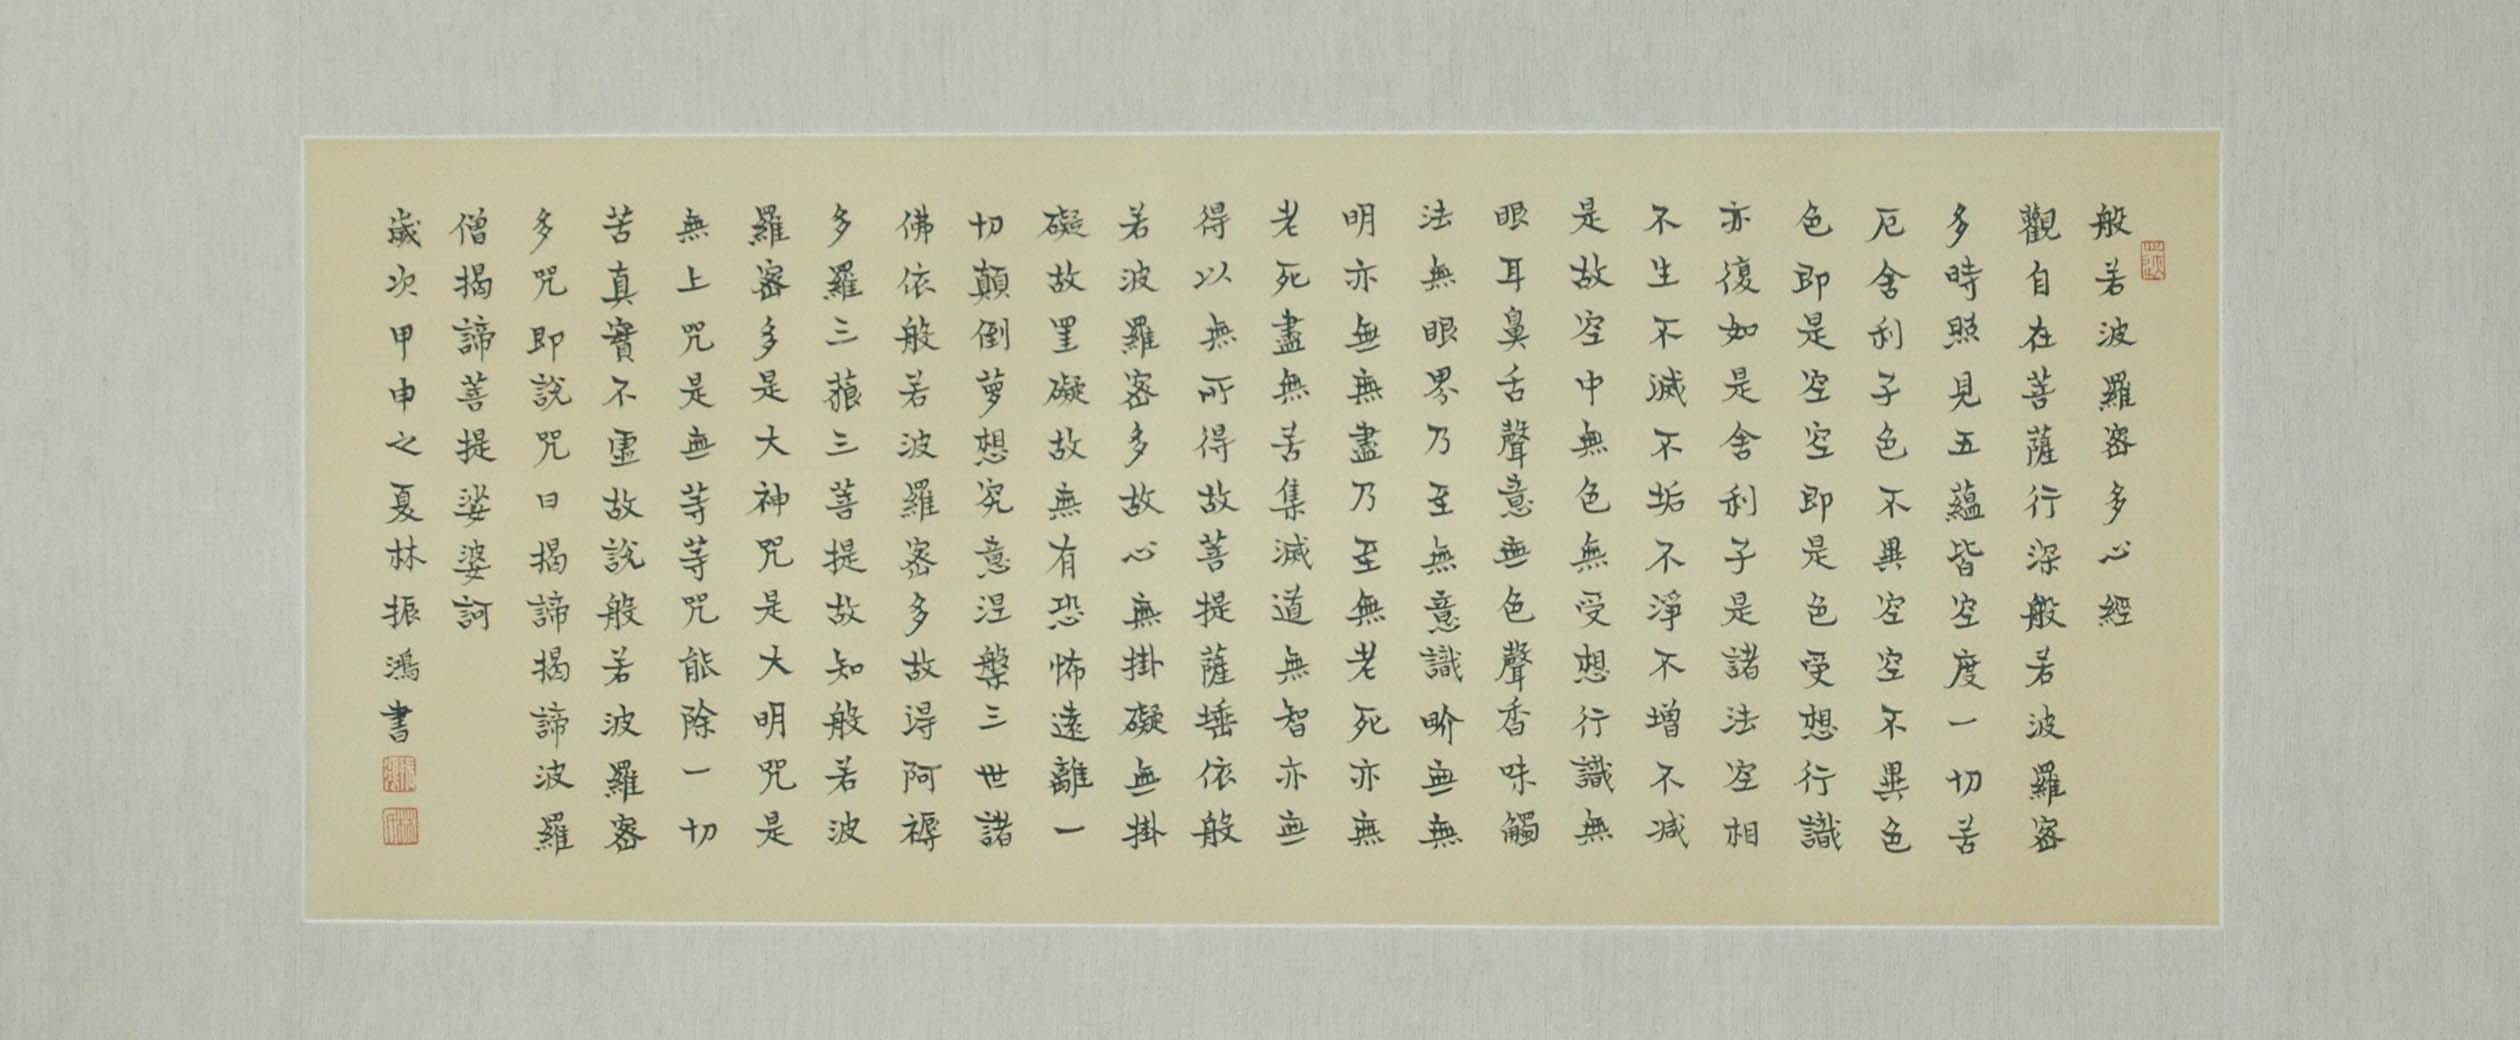 般若波羅密多心經
觀自在菩薩行深般若波羅密
多時照見五蘊皆空度一切苦
厄舍利子色不異空空不異色
色即是空空即是色受想行識
亦復如是舍利子是諸法空相
不生不滅不垢不淨不增不減
是故空中無色無受想行識無
眼耳鼻舌聲意無色聲香味觸
法無眼界乃至無意識界無無
明亦無無盡乃至無老死亦無
老死盡無苦集滅道無智亦無
得以無所得故菩提薩埵依般
若波羅密多故心無掛礙無掛
礙故罣礙故無有恐怖遠離一
切顛倒夢想究意涅槃三世諸
佛依般若波羅密多故得阿褥
多羅三藐三菩提故知般若波
羅密多是大神咒是大明咒是
無上咒是無等等咒能除一切
苦真實不虛故說般若波羅密
多咒即說咒曰揭諦揭諦波羅
僧揭諦菩提娑婆訶
歲次甲申之夏林振鴻書